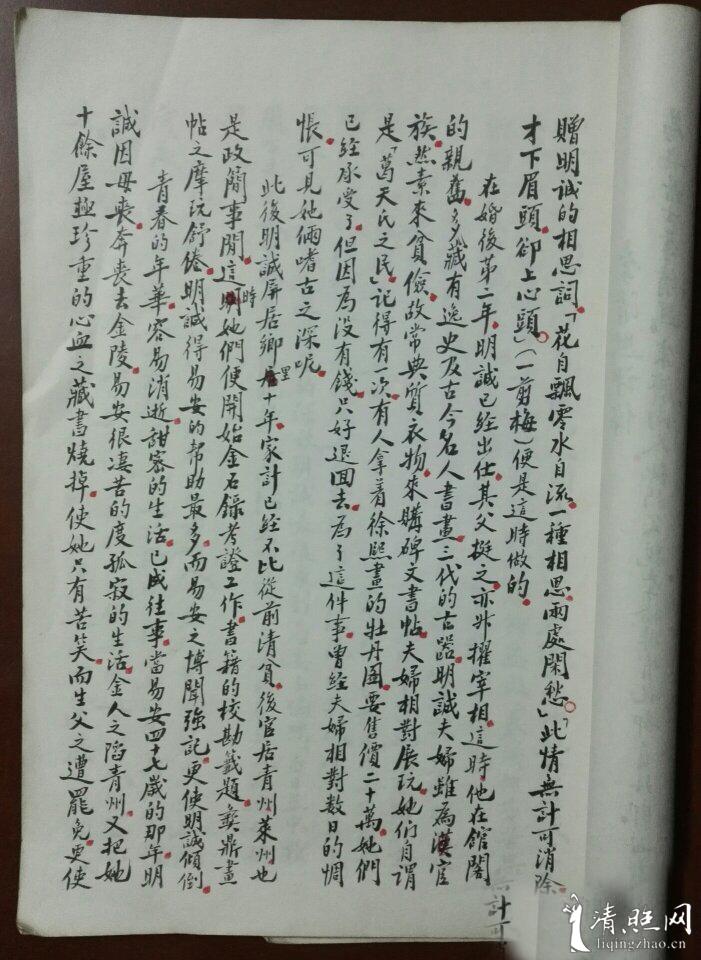 贈明誠的相思詞.「花自飄零水自流.一種相思.兩處閑愁。」「此情無計可消除.
才下眉頭.卻上心頭。」(一剪梅)便是這時做的.
在婚後第二年.明誠已經出仕.其父挺之亦升擢宰相.這時.他在館閣
的親舊.多藏有逸史及古今名人書畫.三代的古器.明誠夫婦雖為漢官
族.然素來貧儉.故常典質衣物.來購碑文書帖.夫婦相對展玩.她们自謂
是「葛天氏之民」.記得有一次.有人拿着徐熙畫的牡丹圖.要售價二十萬.她們
已经承受了.但因為没有錢.只好退回去.為了這件事.曾经夫婦相對数日的惆
悵.可見他倆嗜古之深呢.
此後明誠屏居鄉里十年.家計已经不比從前清貧.後官居青州萊州.也
是政簡事閒.這時她們便開始金石錄考證工作.書籍的校勘籖題.彝鼎畫
帖之摩玩舒倦.明誠得易安的帮助最多.而易安之博聞強記.更使明誠傾倒.
青春的年華.容易消逝.甜密的生活.已成往事.當易安四十七歲的那年.明
誠因母喪.奔喪去金陵.易安很凄苦的度孤寂的生活.金人之陷青州.又把她
十餘屋極珍重的心血之藏書燒掉.使她只有苦笑.而生父之遭罷免.更使
無計可
清照网
liqingzhao.cn